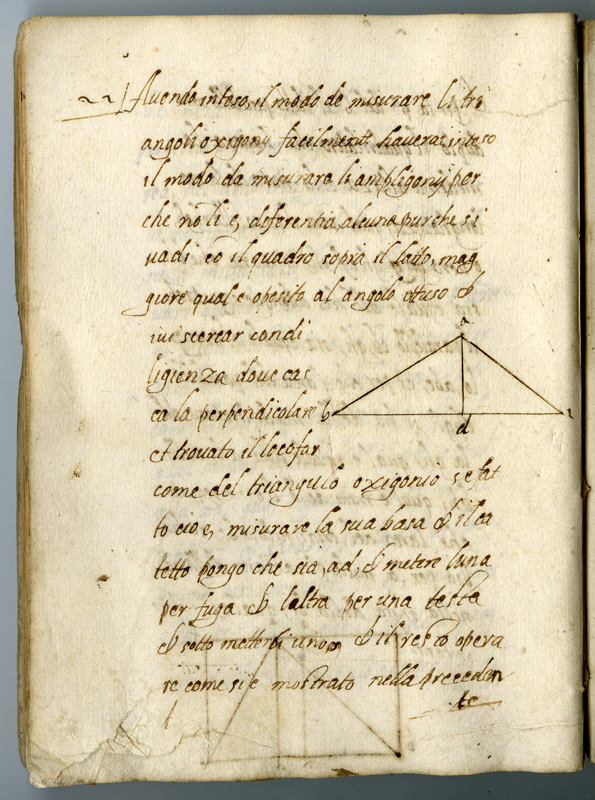 22 Avendo inteso, il modo de misurare li tri
angoli oxigonij facilmente haverai inteso
il modo da misurare li ampligonij per
che nō li e, diferentia, alcuna purche si
vadi cō il quadro sopra il latto, mag
giore qual e oposito al angolo ottuso &
ivi scercar con di
ligienza dove cas
ca la perpendicolare
et trovato il loco far
a
b
d
come del triangulo oxigonio se fat
to cioe, misurare la sua basa & il ca
tetto pongo che sia, ad, & metere luna
per fuga & laltra per una testa
& sotto metterli uno & il resto opera
re come si e mostrato nella preceden
te